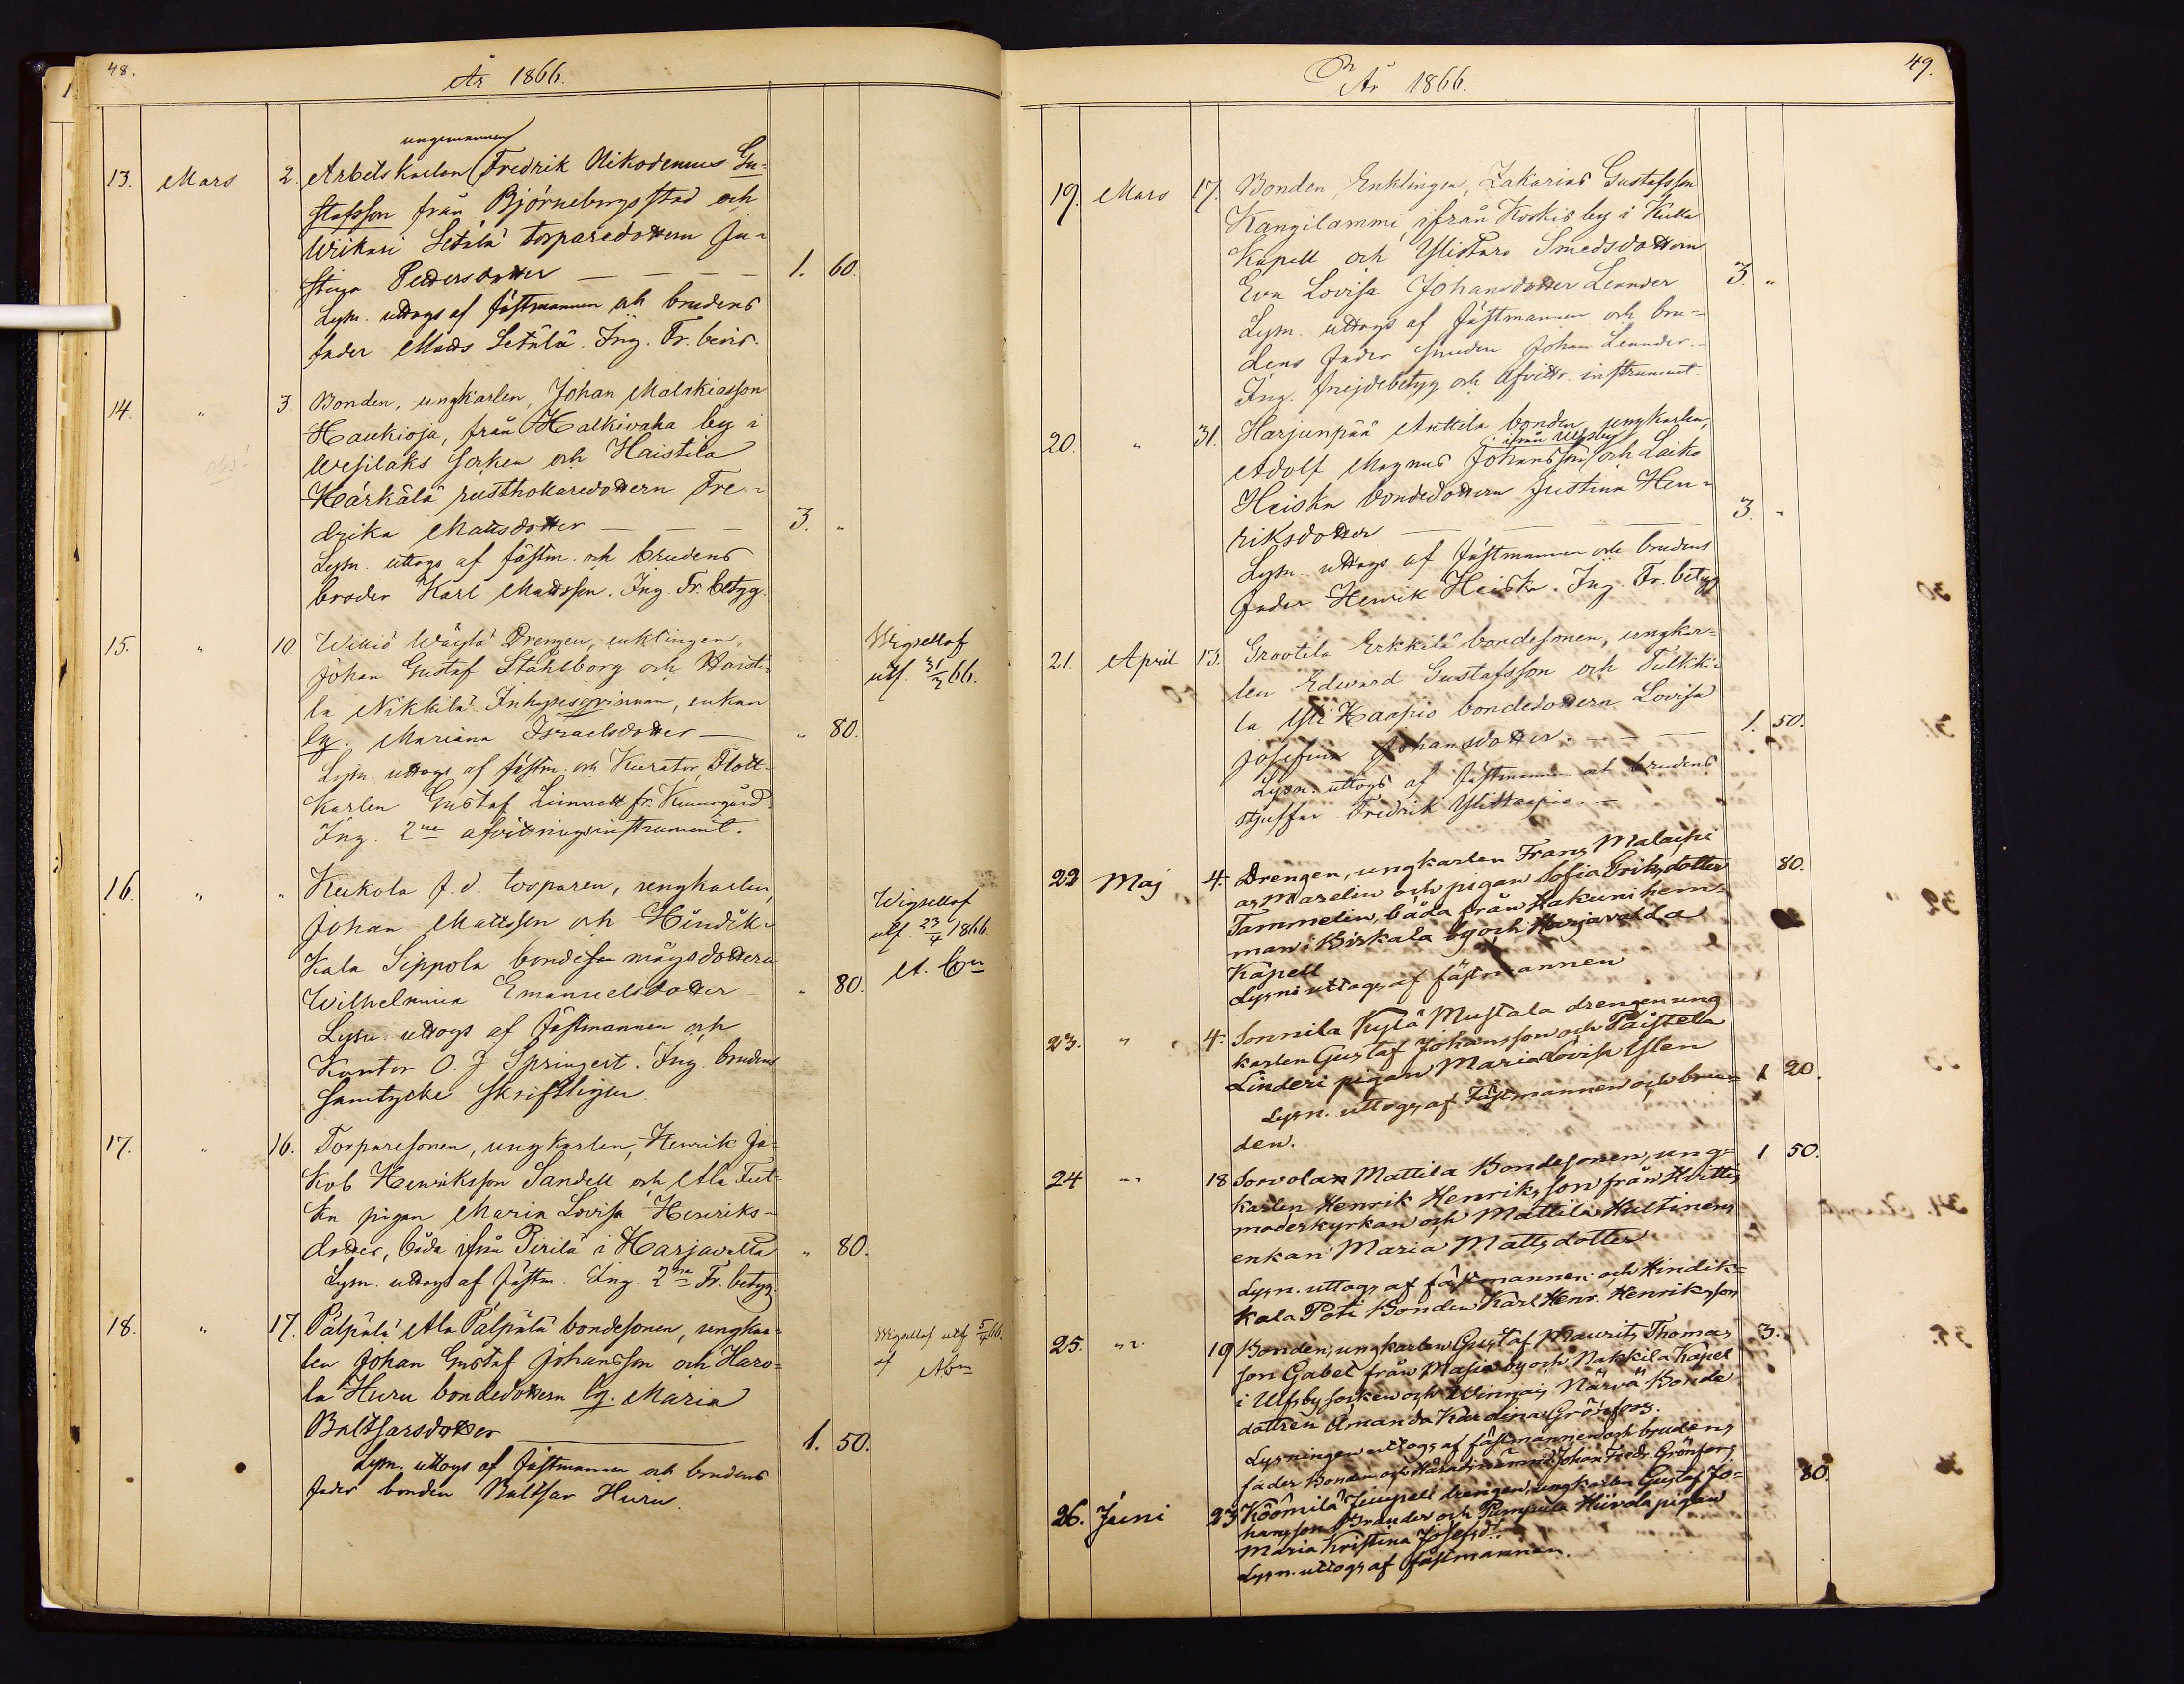 48.
År 1866.
ungmannen
13. Mars 2. Arbetskarlen Fredrik Nikodemus Gu-
stafsson från Björneborgs stad och
Wiikari Setälä torparedottern Ju-
stina Pettersdotter — — — — 1. 60.
Lysn. uttogs af fästmannen och brudens
fader Matts Setälä. Ing. Fr. bevis.
14. " 3. Bonden, ungkarlen, Johan Malakiasson
Haukioja, från Halkivaha by i
obs!
Wesilaks socken och Haistila
Härkälä rusthollaredottern Fre-
drika Mattsdotter — — — 3. "
Lysn. uttogs af fästm. och brudens
broder Karl Mattsson. Ing. Fr. betyg.
15. " 10 Williö Wäylä Drengen, enklingen,
Johan Gustaf Ståhlborg och Haisti-
la Nikkilä Inhysesqvinnan, enkan
Eg. Mariana Israelsdotter — " 80.
Wigsellaf
utf. 31/3 66.
Lysn. uttogs af fästm. och Kurator, Flott-
karlen Gustaf Linnrott fr. Kumogård.
Ing. 2ne afvittringsinstrument.
16. " " Kukola f.d. torparen, ungkarlen,
Johan Mattsson och Hindik-
kala Seppola bonde mågsdottern
Wilhelmina Emanuelsdotter — " 80.
Wigsellaf
utf. 23/4 1866.
Lysn. uttogs af fästmannen och
Kantor O. J. Springert. Ing. brudens
samtycke skriftligen.
17. " 16. Torparesonen, ungkarlen, Henrik Ja-
kob Henriksson Sandell och Ala
pigan Maria Lovisa Henriks-
dotter, båda ifrån Pirilä i Harjavalta " 80.
Lysn. uttogs af fästm. Ing. 2ne Fr. betyg.
18. " 17. Pälpälä Ala Pälpälä bondesonen, ungkar-
len Johan Gustaf Johansson och Haro-
la Huru bondedottern Eg. Maria
Baltsarsdotter — 1. 50.
Wigsellaf utf 5/4 66.
af
Lysn. uttogs af fästmannen och brudens
fader bonden Baltsar Huru.
49.
År 1866.
19. Mars 17. Bonden, Enklingen, Zakarias Gustafsson
Kangilammi, ifrån Koskis by i Kulla
Kapell och Ylistaro Smedsdottern
Eva Lovisa Johansdotter Leander 3. "
Lysn. uttogs af fästmannen och bru-
dens fader Smeden Johan Leander.—
Ing. frejdebetyg och afvittr. instrument.
20. " 31. Harjunpää Anttila bonden ungkarlen,
ifrån Ulfsby
Adolf Magnus Johansson och Laiko
Heiska bondedottern Justina Hen-
riksdotter — — — — 3. "
Lysn. uttogs af fästmannen och brudens
fader Henrik Heiska. Ing. Fr. betyg
21. April 13. Grootila Erkkilä bondesonen, ungkar-
len Edward Gustafsson och Tulkki-
la Yli Haapio bondedottern Lovisa
Josefina Johansdotter. — — — 1. 50.
Lysn. uttogs af fästmannen och brudens
styffar Fredrik Ylihaapio. —
22 Maj 4. Drengen, ungkarlen Frans Malachi 80.
as Maselin och pigan Sofia Eriksdotter
Tammelin, båda från Hakuni hem-
man i Kirkala by och Harjavalda
Kapell
Lysni uttogs af fästmannen
23. " 4. Sonnila Kylä Mustala drengen ung
karlen Gustaf Johansson och Paistela
Linderi pigan Maria Lovisa Ylen 1 20.
Lysn. uttogs af Fästmannen och bru-
den.
24 " 18 Sorvola Mattila Bondesonen, ung- 1 50.
karlen Henrik Henriksson från Hvittis
moderkyrkan och Mattila Hultinens
enkan Maria Mattsdotter
Lysn. uttogs af fästmannen och Hindik-
kala Poti Bonden Karl Henr. Henriksson
25. " 19 Bonden, ungkarlen Gustaf Maurits Thomas 3.
son Gabel från Masia by och Nakkila Kapel
i Ulfsby socken och Winnais Närvä Bonde
dottren Amanda Karolina Grönfors.
Lysningen uttogs af fästmannen och brudens
fader Bonden och Häradsnämnd Johan Fredr. Grönfors
26. Juni 23 Köömilä Juupeli drengen, ungkarlen Gustaf Jo- 80.
hansson Grander och Pumpula Hiirola pigan
Maria Kristina Josefsd:r
Lysn. uttogs af fästmannen.